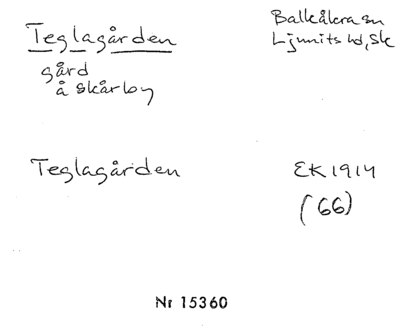 Teglagården
Balkåkra sn
Ljunits hd, Sk
gård
å Skårby
Teglagården
EK 1914
(66)
Nr 15360